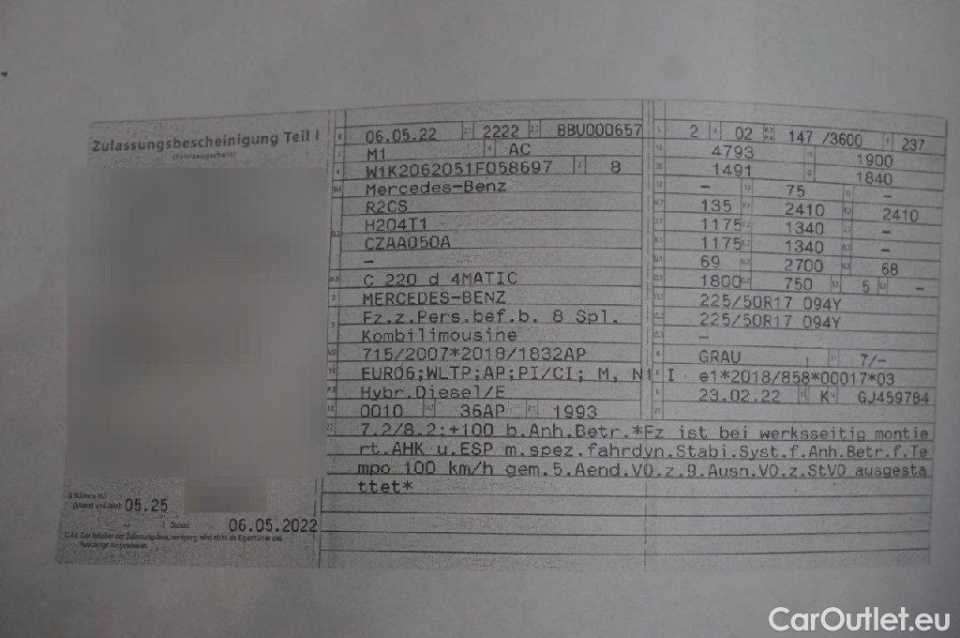 Zulassungsbescheinigung Teil I
(Fahrzeugschein)
06.05.22 2222 BBU000657
M1 AC
W1K2062051F058697 8
Mercedes-Benz
R2CS
H204T1
CZAA050A
–
C 220 d 4MATIC
MERCEDES-BENZ
Fz.z.Pers.bef.b. 8 Spl.
Kombilimousine
715/2007*2018/1832AP
EURO6;WLTP;AP;PI/CI; M, N1 I
Hybr.Diesel/E
0010 36AP 1993
2 02 147 /3600 237
4793 1900
1491 1840
– 75 –
135 2410 2410
1175 1340 –
1175 1340 –
69 2700 68
1800 750 5 –
225/50R17 094Y
225/50R17 094Y
–
GRAU 7/–
e1*2018/858*00017*03
23.02.22 K GJ459784
7.2/8.2:+100 b.Anh.Betr.*Fz ist bei werksseitig montie
rt.AHK u.ESP m.spez.fahrdyn.Stabi.Syst.f.Anh.Betr.f.Te
mpo 100 km/h gem.5.Aend.VO.z.9.Ausn.VO.z.StVO ausgesta
ttet*
05.25
06.05.2022
C.4c Der Inhaber der Zulassungsbescheinigung wird nicht als Eigentümer des
Fahrzeugs ausgewiesen.
CarOutlet.eu